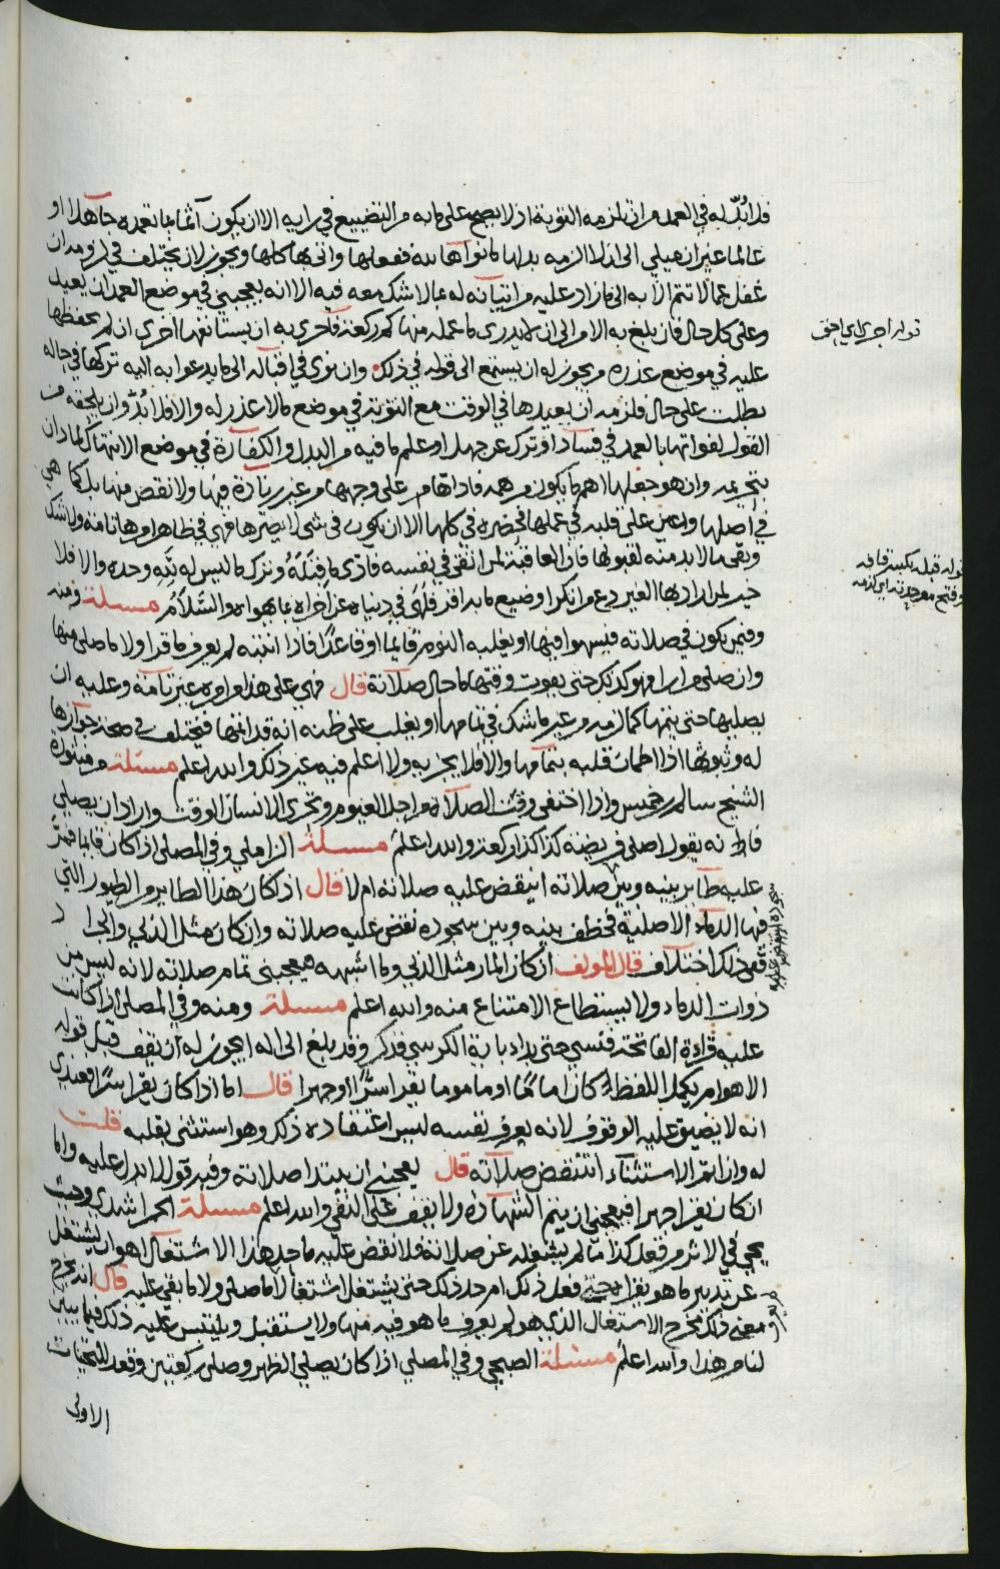 فلا بدّ له في العمد من ان تلزمه التوبة اذ لا يصح على ما به من التضييع في رايه الا ان يكون آثما بما تعمده جاهلا او
عالما غير ان ميلي الى ان لا الزمه بدلها ما نواها لله ففعلها واتى بها كلها ويجوز لان يختلف في لزومه ان
غفل عما لا تتم الا به الى ما زاد عليه من اتيانه له بما لا شك معه فيه الا انه يعجبني في موضع العمد ان يعيد
وعلى كل حال فان بلغ به الامر الى ان لا يدرى ما عمله منها كم ركعة فاحرى به ان يستانفها احرى ان لم يحفظها
عليه في موضع عذره ويجوز له ان يستمع الى قوله في ذلك وان نوى في اقباله الى ما يدعوا به اليه تركها في حاله
بطلت على حال فلزمه ان يعيدها في الوقت مع التوبة في موضع ما لا عذر له والا فلا بدّ وان يلحقه من
القول لفواتها بالعمد في فساد او ترك عن جهل او علم ما فيه من البدل والكفارة في موضع الانتهاك لما دان
بتحريمه وان هو جعلها اهم ما يكون من همه فاداها على وجهها من غير زيادة فيها ولا نقص منها بل كما هي
في اصلها واعين على قلبه في عملها فحضره في كلها الا ان يكون في شيء لا يضرها فهي في ظاهر امرها تامة ولا شك
وبقي ما لا بد منه لقبولها فان العاقبة لمن اتقى في نفسه فادّى ما قِبَلَهُ وترك ما ليس له لله وحده والا فلا
خير لمن اراد بها الغير دع من انكر او ضيع ما به امر فلهى في دنياه عن اخراه بما يهواه والسّلام مسئلة ومنه
وفيمن يكون في صلاته فيسهوا فيها او يغلبه النوم قايما او قاعدًا فاذا انتبه لم يعرف ما قرا ولا ما صلى منها
وان صلى مرارا فهو كذلك حتى يفوت وقتها ما حال صلاته قال فهي على هذا من امره غير تامة وعليه ان
يصليها حتى يتمها كما لزمه من غير ما شك في تمامها او يغلب على ظنه انه قد اتمها فيختلف في صحة جوازها
له وثبوتها اذا اطمان قلبه بتمامها والا فلا يجزيه ولا اعلم فيه غير ذلك والله اعلم مسئلة من منثورة
الشيخ سالم بن خميس واذا اختفى وقت الصلاة من اجل الغيوم وتحرى الانسان الوقت واراد ان يصلي
قال انه يقول اصلي فريضة كذا كذا ركعة والله اعلم مسئلة الزاملي وفي المصلي اذا كان قايما فمرّ
عليه طاير بينه وبين صلاته اينقض عليه صلاته ام لا قال اذا كان هذا الطاير من الطيور التي
فيها الدماء الاصلية فخطف بينه وبين سجوده نقض عليه صلاته وان كان مثل الذبي والجراد
ففي ذلك اختلاف قال المولف ان كان المار مثل الذبي وما اشبهه فيعجبني تمام صلاته لانه ليس من
ذوات الدماء ولا يستطاع الامتناع منه والله اعلم مسئلة ومنه وفي المصلي اذا كانت
عليه قراءة الفاتحة فنسي حتى بدا باية الكرسي فذكر وقد بلغ الى اله ايجوز له ان يقف قبل قوله
الا هو ام يكمل اللفظ كان اماما او ماموما يقرا سرًّا او جهرا قال اما اذا كان يقرا سرًّا فعندي
انه لا يضيق عليه الوقوف لانه يعرف نفسه ليس اعتقاده ذلك وهو استثنى بقلبه قلت
له وان اتم الاستثناء اتنتقض صلاته قال يعجبني ان يبتدا صلاته وفيه قول لا بدل عليه واما
ان كان يقرا جهرا فيعجبني ان يتم الشهادة ولا يقف على النفي والله اعلم مسئلة الحراشدي وحيث
يجي في الاثر من فعل كذا ما لم يشغله عن صلاته فلا نقض عليه ما حد هذا الاشتغال اهو ان يشتغل
عن تدبير ما هو يقرا فعل ذلك ام حد ذلك حتى يشتغل اشتغالا ما صلى ولا ما بقي عليه قال انه يخرج
معنى ذلك مخرج الاشتغال الذي هو لم يعرف ما هو فيه منها ولا يستقبل ويلتبس عليه ذلك فيما يبين
لنا من هذا والله اعلم مسئلة الصبحي وفي المصلي اذا كان يصلي الظهر وصلى ركعتين وقعد للتحيات
الاولى
قوله احرى اي احق
قوله قبله بكسر قافه
وفتح موحدته اي لزمه